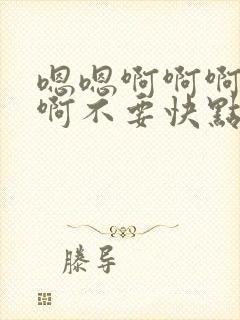 嗯嗯啊啊啊
啊不要快點
滕导